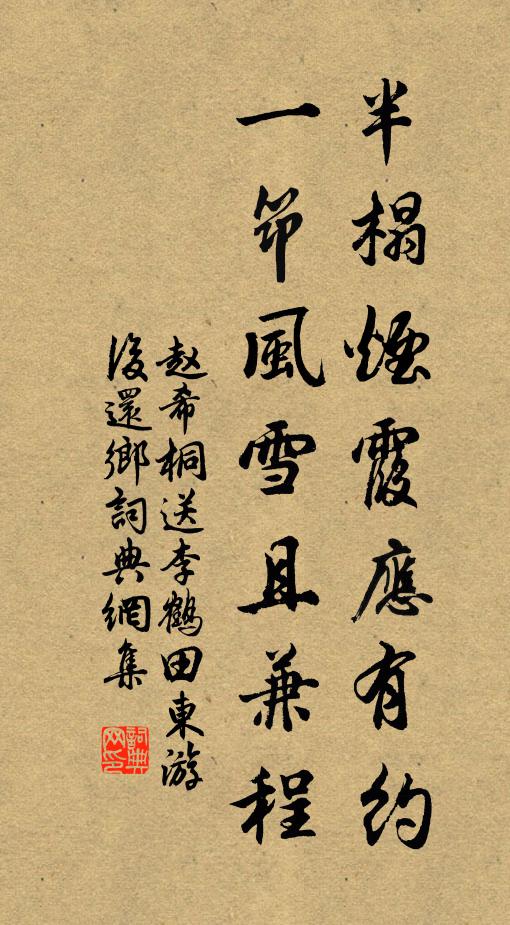 半榻煙霞應有約
一笻風雪且兼程
赵希桐送李鶴田東游
後還鄉詞典網集
詞典
网印